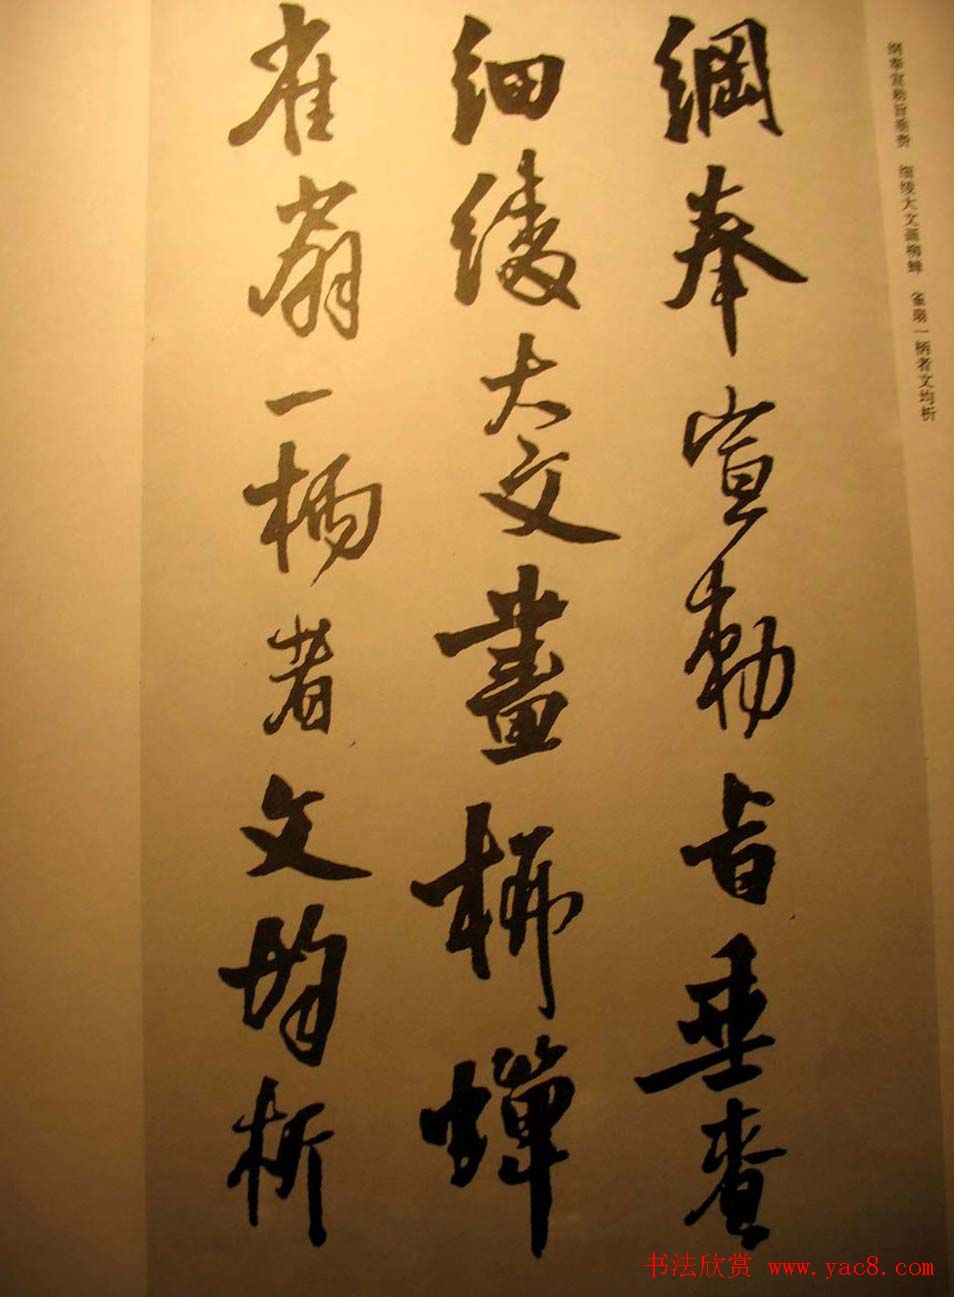 纲奉宣勅旨垂赉　细绫大文画柳蝉　雀扇一柄者文均析
綱奉宣勅旨垂赉
細綾大文畫柳蟬
雀扇一柄者文均析
书法欣赏 www.yac8.com